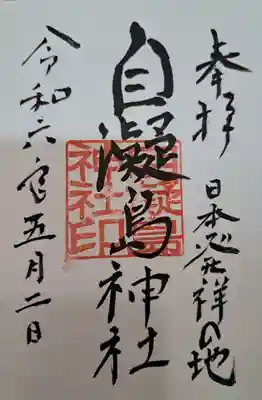 奉拝
日本発祥の地
自凝島神社
自凝島
神社印
令和六年五月二日